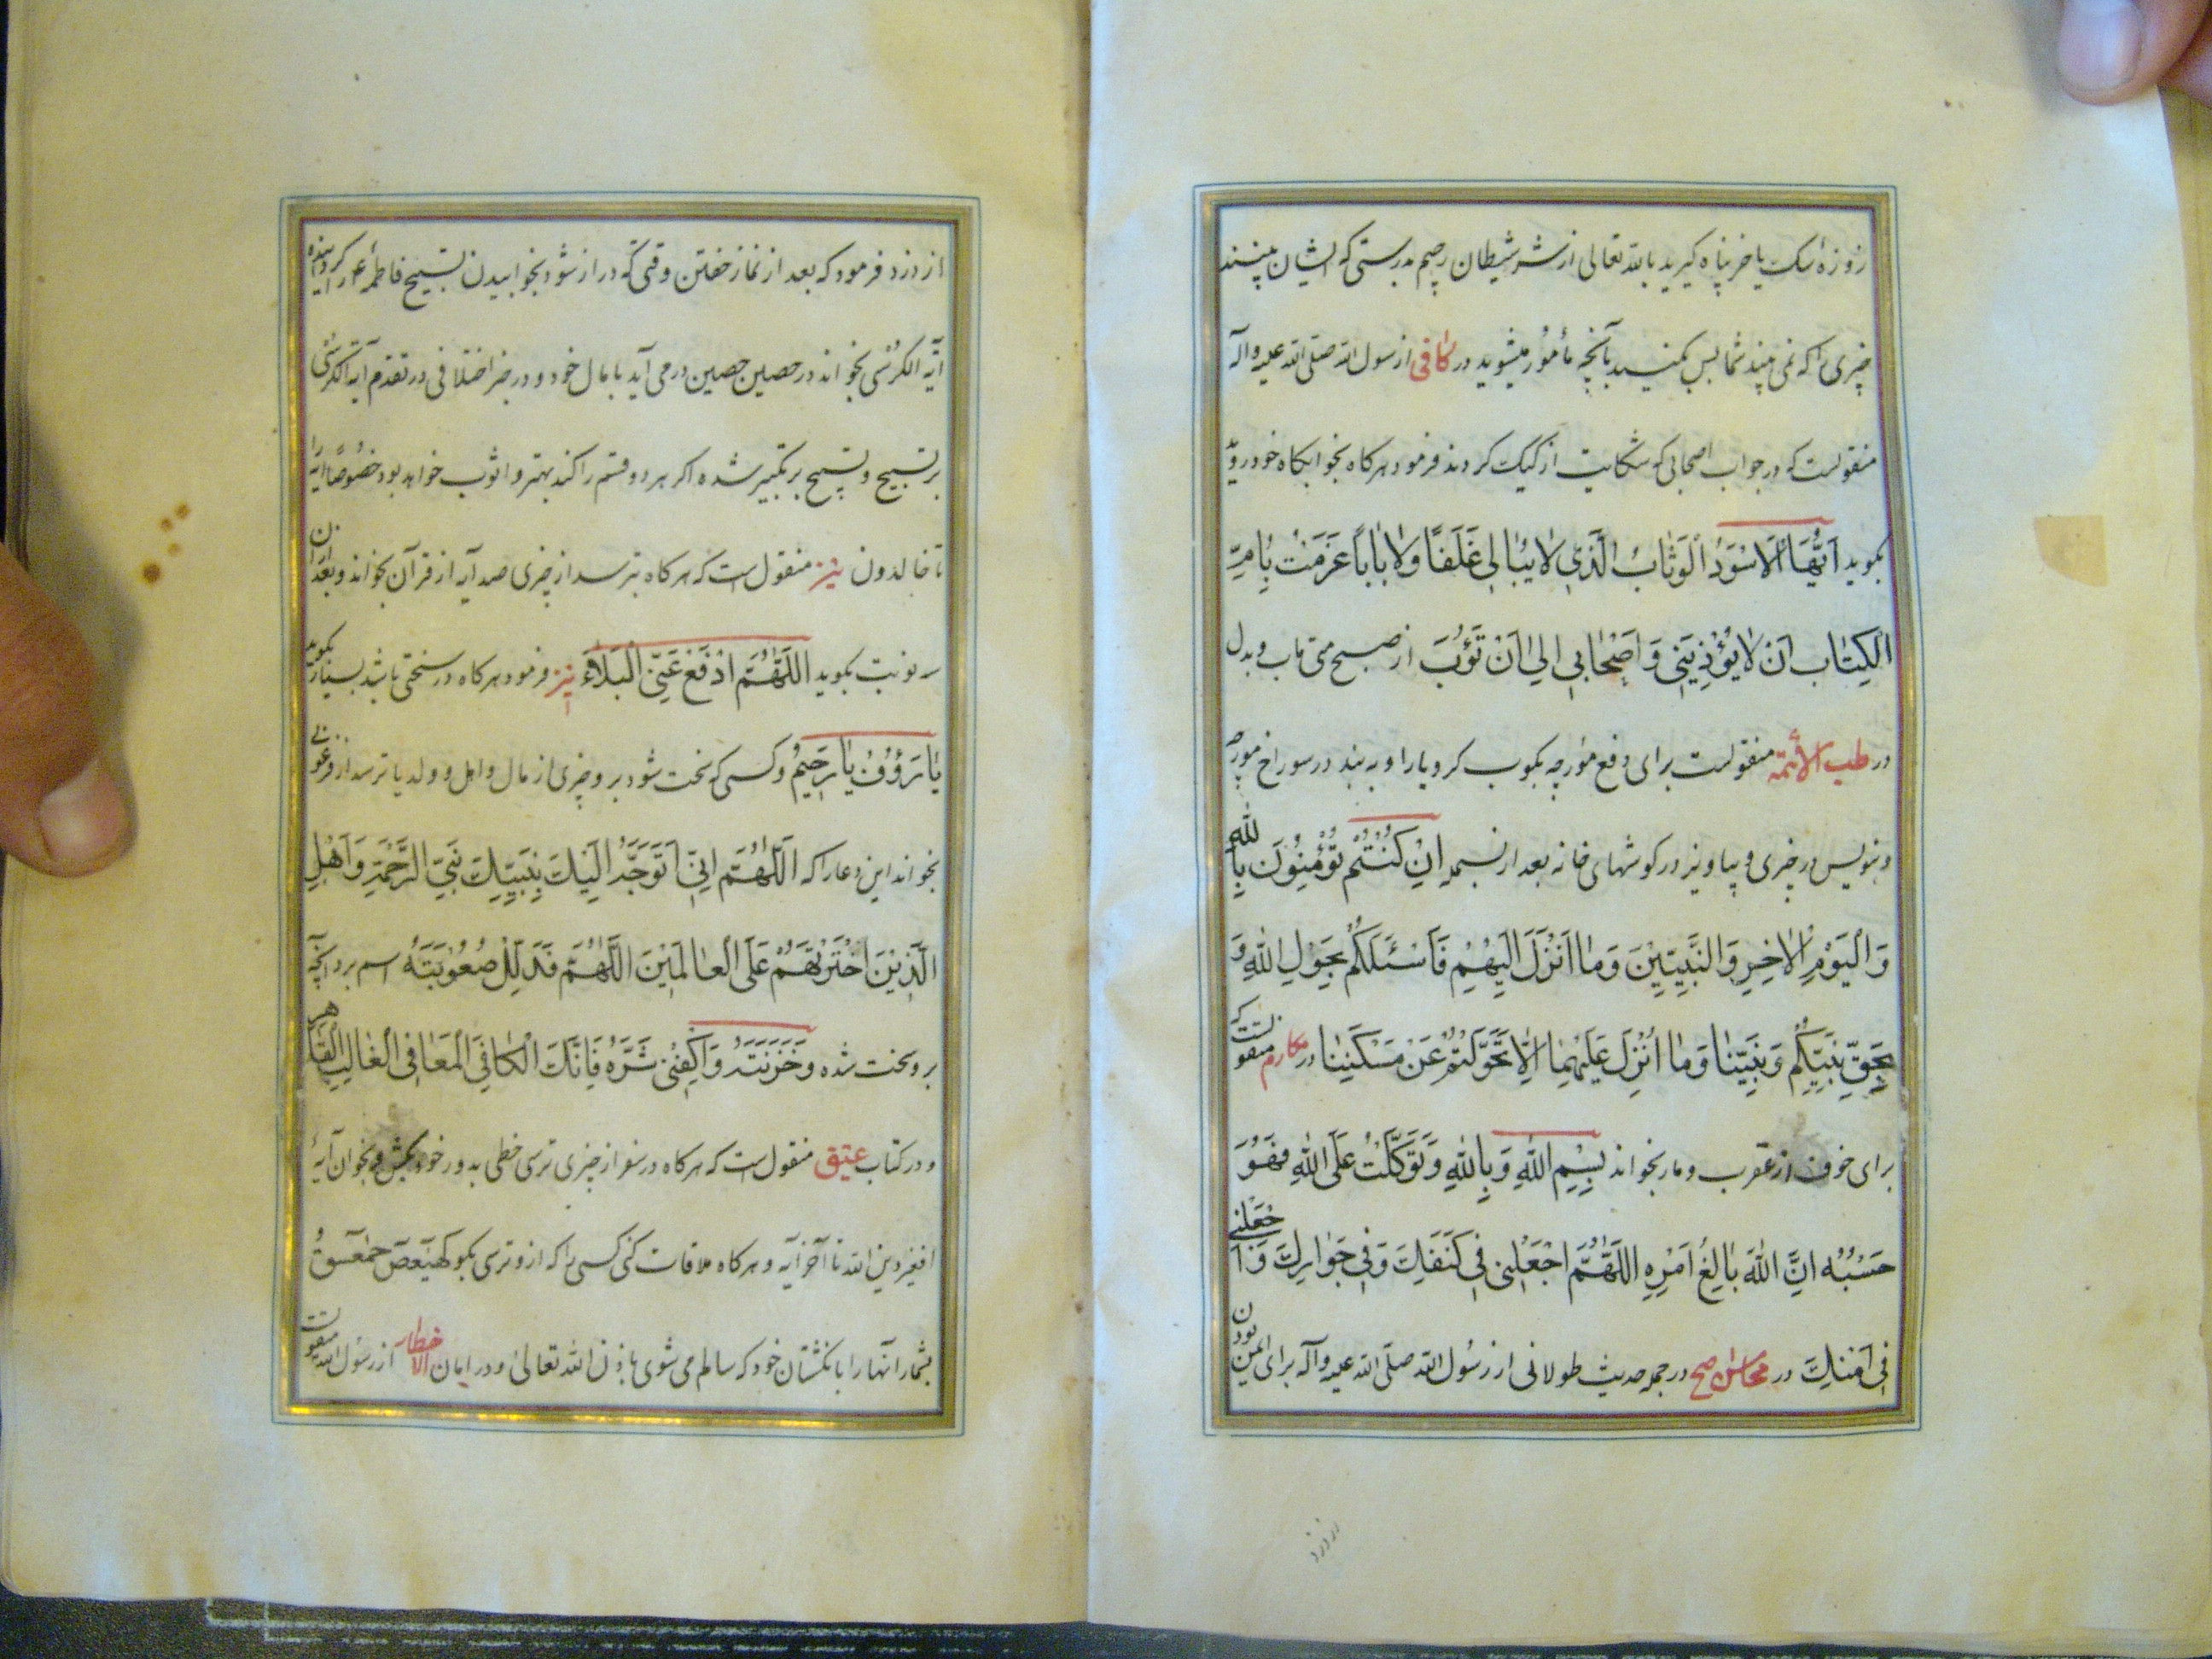 زوزهٔ سک یا خر پناه کیرید بالله تعالی از شر شیطان رجیم بدرستی که ایشان میبینند
چیزی را که نمی بینید شما پس بکنید بآنچه مأمور میشوید در کافی از رسول الله صلّی الله علیه وآله
منقولست که در جواب اصحابی که شکایت از کیک کردند فرمود هرکاه بخوابکاه خود روید
بکوید اَیُّهَا الاَسْوَدُ الوَثّابُ الَّذی لا یُبالی غَلَقًا وَلا باباً عَزَمْتُ بِاُمِّ
الکِتابِ اَنْ لا یُؤْذِیَنی وَ اَصْحابی اِلی اَنْ تَؤُبَ از صبح متی ماب و بدل
در طب الأئمّه منقولست برای دفع مورچه بکوب کرویا را و به بند در سوراخ مورچه
و بنویس در چیزی و بیاویز در کوشهای خانه بعد از بسمله اِنْ کُنْتُمْ تُؤْمِنُونَ بِاللهِ
وَالْیَوْمِ الاخِرِ وَالنَّبِیّینَ وَما اُنْزِلَ اِلَیْهِمْ فَاَسْئَلُکُمْ بِحَوْلِ اللهِ وَ
بِحَقِّ نَبِیِّکُمْ وَنَبِیِّنا وَما اُنْزِلَ عَلَیْهِما اِلاّ تَحَوَّلْتُمْ عَنْ مَسْکَنِنا در مکارم منقولست که
برای خوف از عقرب و مار بخواند بِسْمِ اللهِ وَبِاللهِ وَتَوَکَّلْتُ عَلَی اللهِ فَهُوَ
حَسْبُهُ اِنَّ اللهَ بالِغُ اَمْرِهِ اللّهُمَّ اجْعَلْنی فی کَنَفِکَ وَفی جَوارِکَ وَاجْعَلْنی
فی اَمْنِکَ در محاسن صح در جمله حدیث طولانی از رسول الله صلّی الله علیه وآله برای ایمن بودن
از دزد
از دزد فرمود که بعد از نماز خفتن وقتی که دراز شود بخوابیدن تسبیح فاطمه ع را کرداننده
آیة الکرسی بخواند در حصین حصین درمی آید با مال خود و در خبر اختلافی در تقدم آیة الکرسی
بر تسبیح و تسبیح بر تکبیر شده اکر هر دو قسم را کند بهتر و اثوب خواهد بود خصوصًا آیه را
تا خالدون نیز منقول است که هرکاه بترسد از چیزی صد آیه از قرآن بخواند و بعد از آن
سه نوبت بکوید اللّهُمَّ ادْفَعْ عَنِّی البَلاءَ نیز فرمود هرکاه در سختی باشد بسیار بکوید
یا رَؤُفُ یا رَحیمُ و کسی که سخت شود بر و چیزی از مال و اهل و ولد یا ترسد از فرعونی
بخواند این دعا را که اَللّهُمَّ اِنّی اَتَوَجَّهُ اِلَیْکَ بِنَبِیِّکَ نَبِیِّ الرَّحْمَةِ وَاَهْلِ
الَّذینَ اخْتَرْتَهُمْ عَلَی الْعالَمینَ اللّهُمَّ فَذَلِّلْ صُعُوبَتَهُ اسم برد آنچه
بر و سخت شده وَحُزُونَتَهُ وَاکْفِنی شَرَّهُ فَاِنَّکَ الْکافِی الْمُعافِی الْغالِبِ الْقاهِر
و در کتاب عتیق منقول است که هرکاه در سفر از چیزی ترسی خطی بدور خود بکش و بخوان آیهٔ
افغیر دین الله تا آخر آیه و هرکاه ملاقات کنی کسی را که ازو ترسی بکو کهیعص حمعسق
بشمار آنها را بانکشتان خود که سالم می شوی باذن الله تعالی و در امان الاخطار از رسول الله منقولست